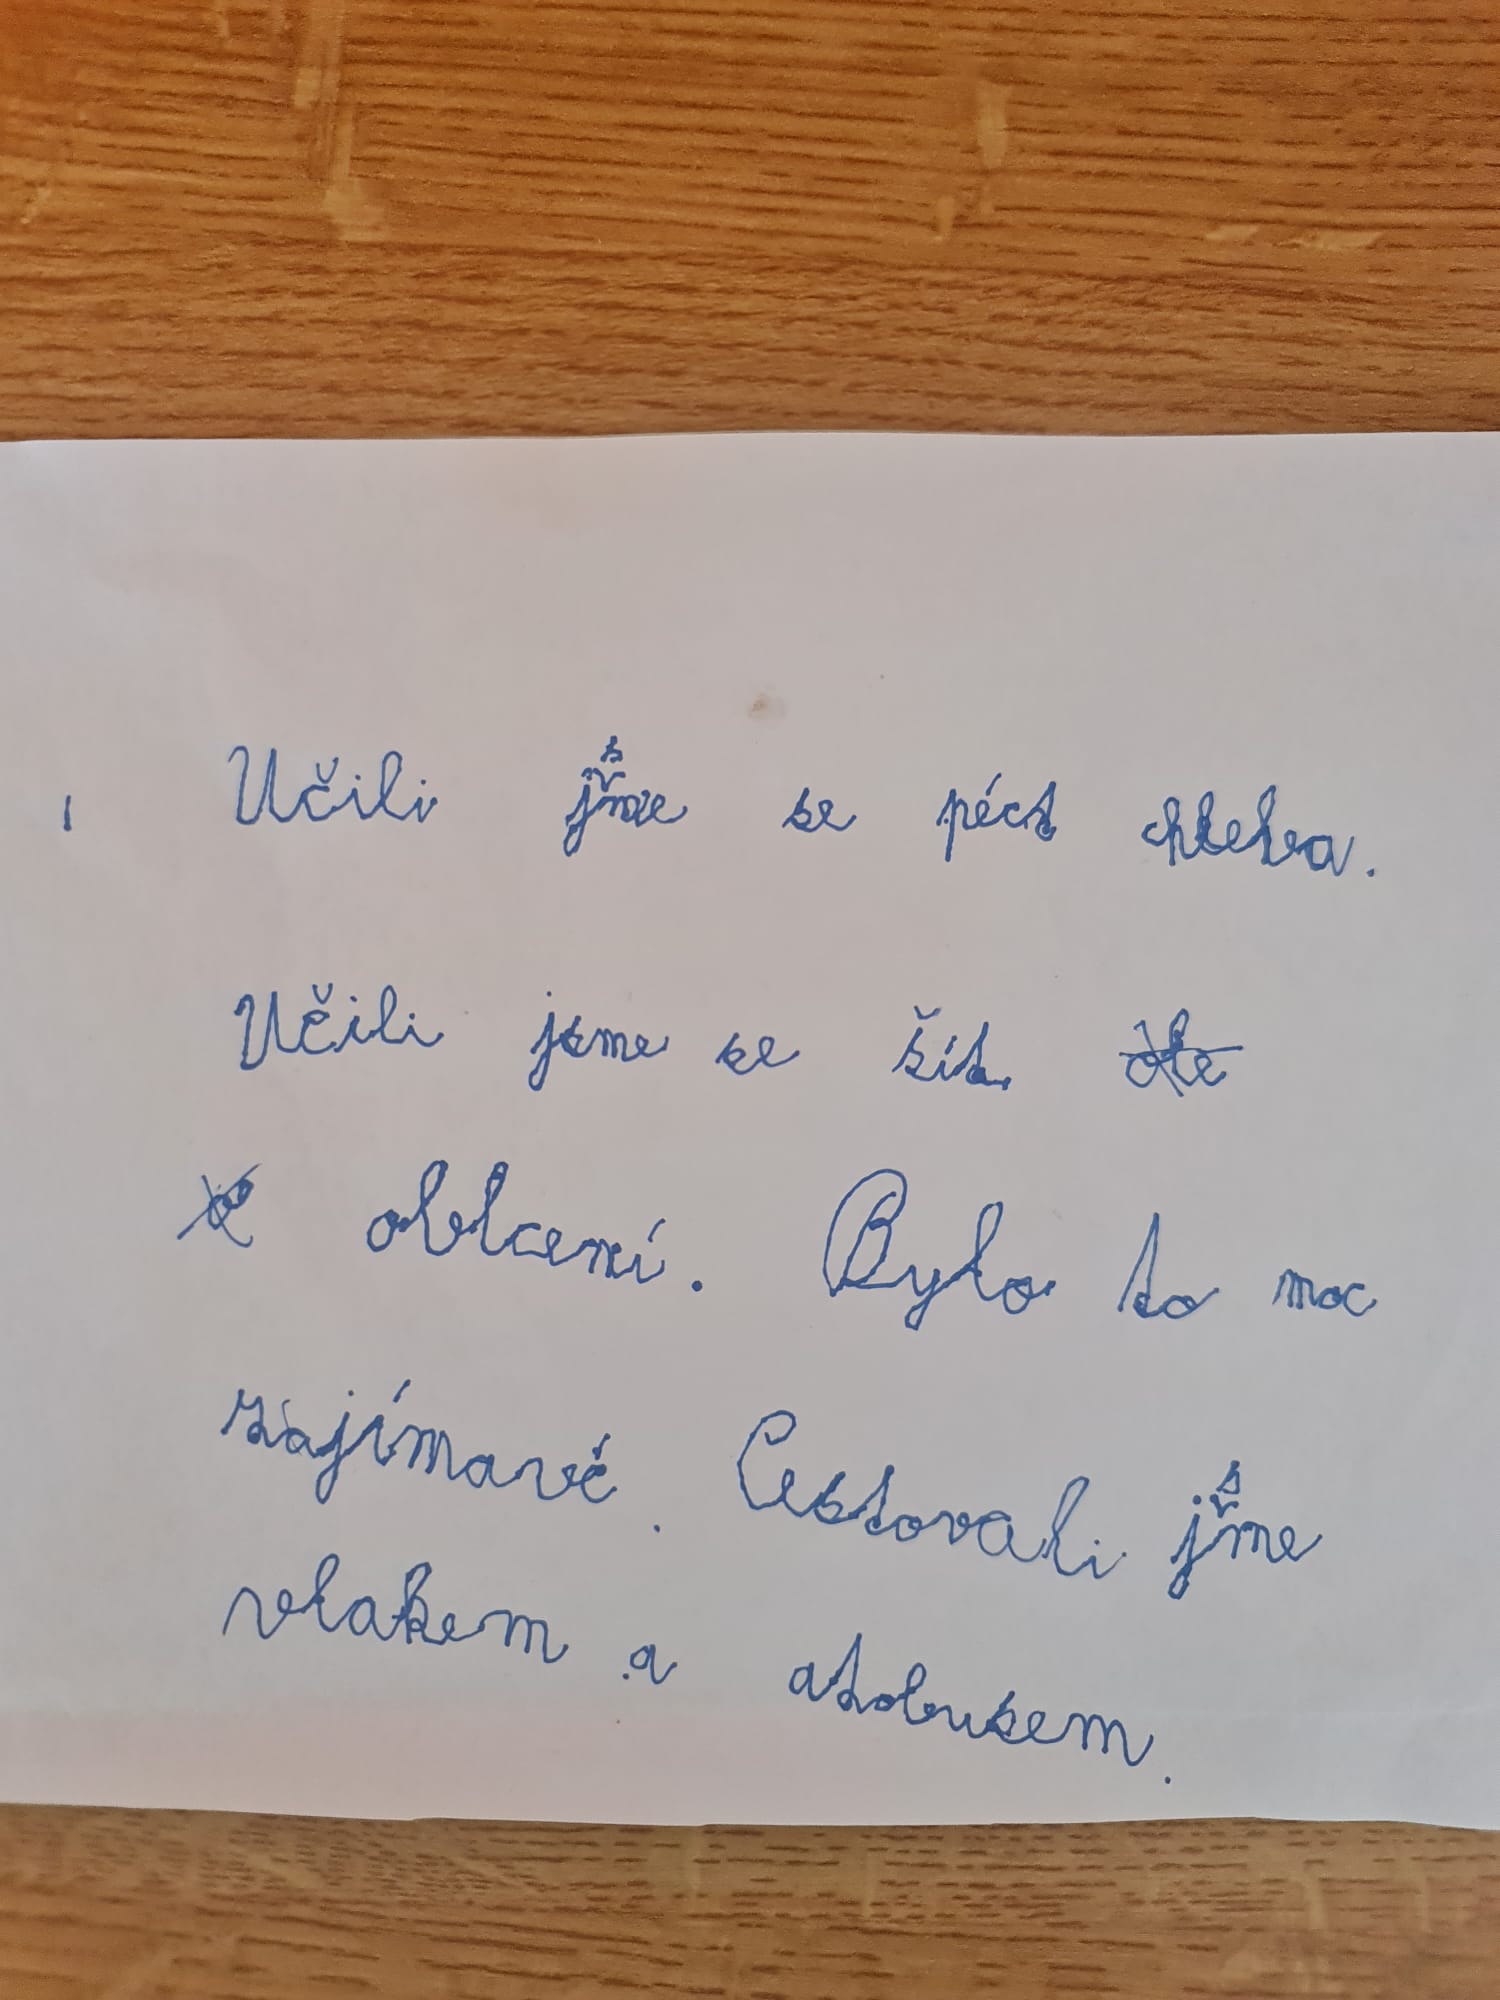 Učili jsme se péct chleba.
Učili jsme se šít
oblcení. Bylo to moc
zajímavé. Cestovali jsme
vlakem a atobusem.